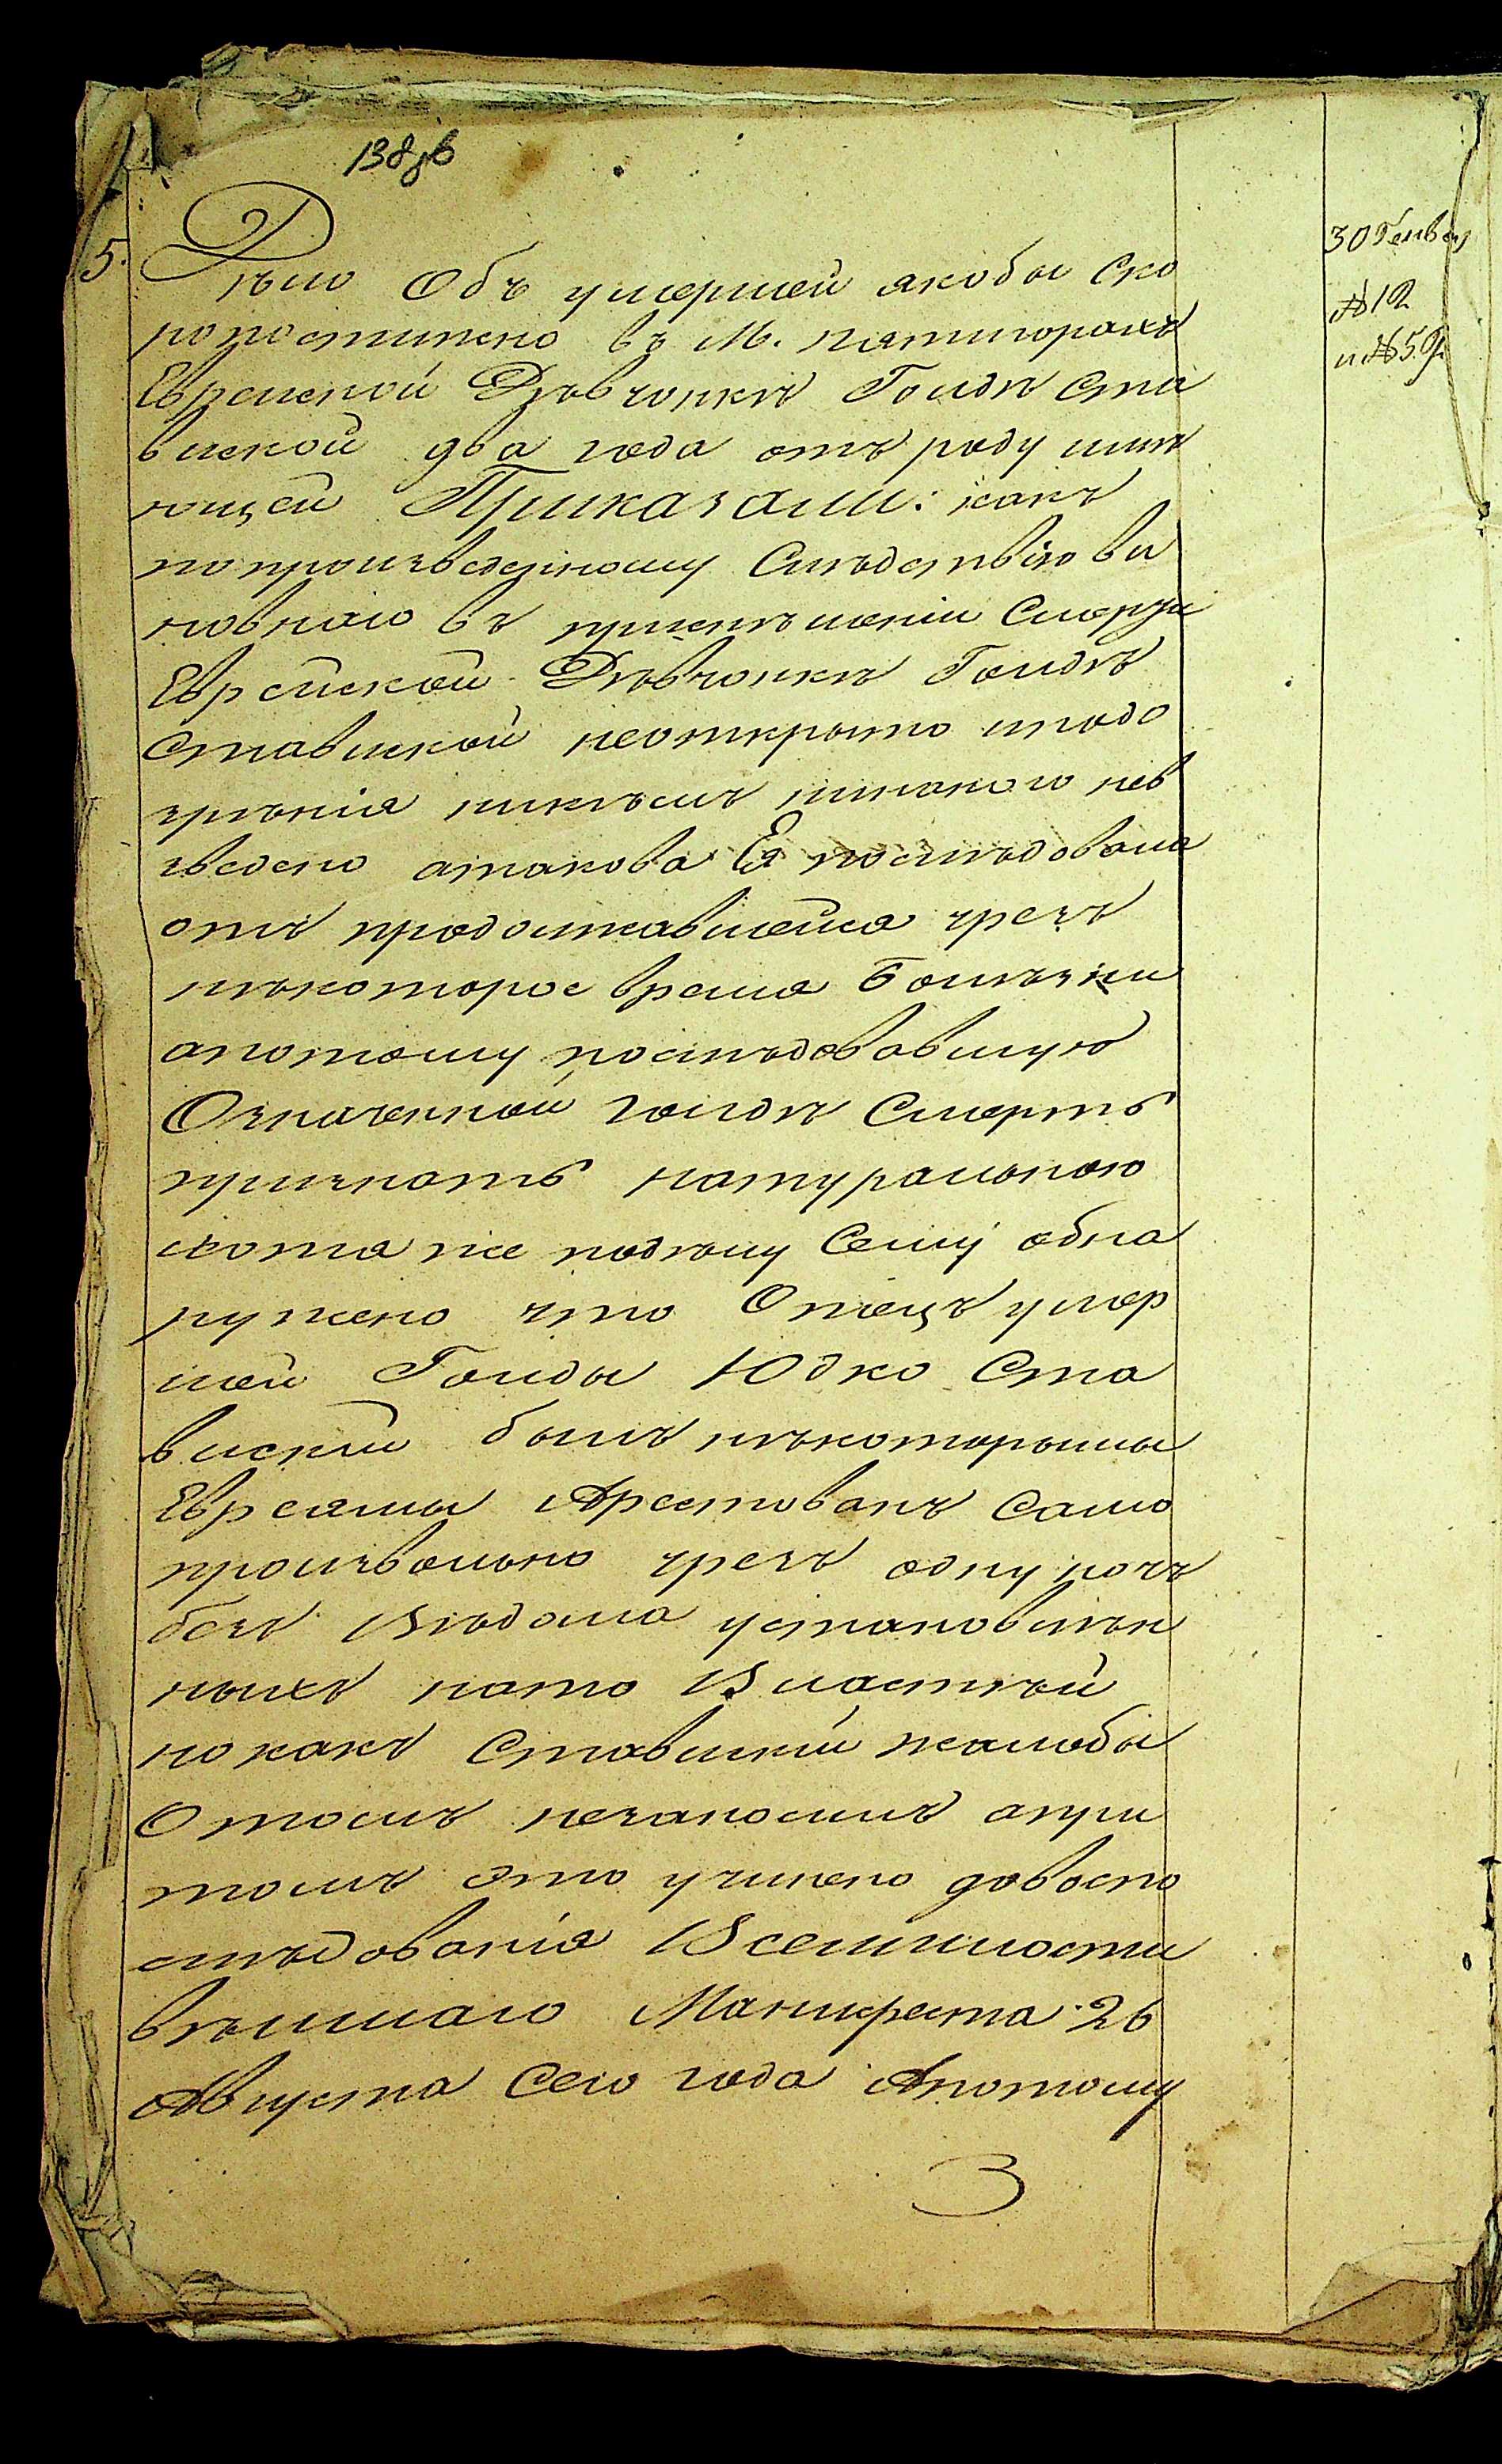 138зв
5.
Дѣло Объ умершей якобы Ско
ропостижно въ М. пятигорахъ
Еврейской Дѣвчонкѣ Голдѣ Ста
виской два года отъ роду имѣ
ющей Приказали: какъ
попроизведенному Слѣдствію ви
новнаго въ приключеніи Смерти
Еврейской Дѣвчонкѣ Голдѣ
Ставиской неоткрыто иподо
зрѣнія никѣмъ никакого нев
зведено атакова Ея послѣдовала
отъ продолжавшейся чрезъ
нѣкоторое время Болѣзни
апотому послѣдовавшую
Означенной голдѣ Смерть
признать натуральною
хотя же подѣлу Сему обна
ружено что Отецъ умер
шей Голды Юдко Ста
вискій былъ нѣкоторыми
Евреями Арестованъ Само
произвольно чрезъ одну ночь
безъ Вѣдома установлен
ныхъ нато Властей
но какъ Ставискій жалобы
Отомъ незаносилъ апри
томъ это учинено довоспо
слѣдованія Всемилости
вѣйшаго Манифеста 26
Августа Сего года Апотому
З
30 Генвар
№ 12
и № 59.